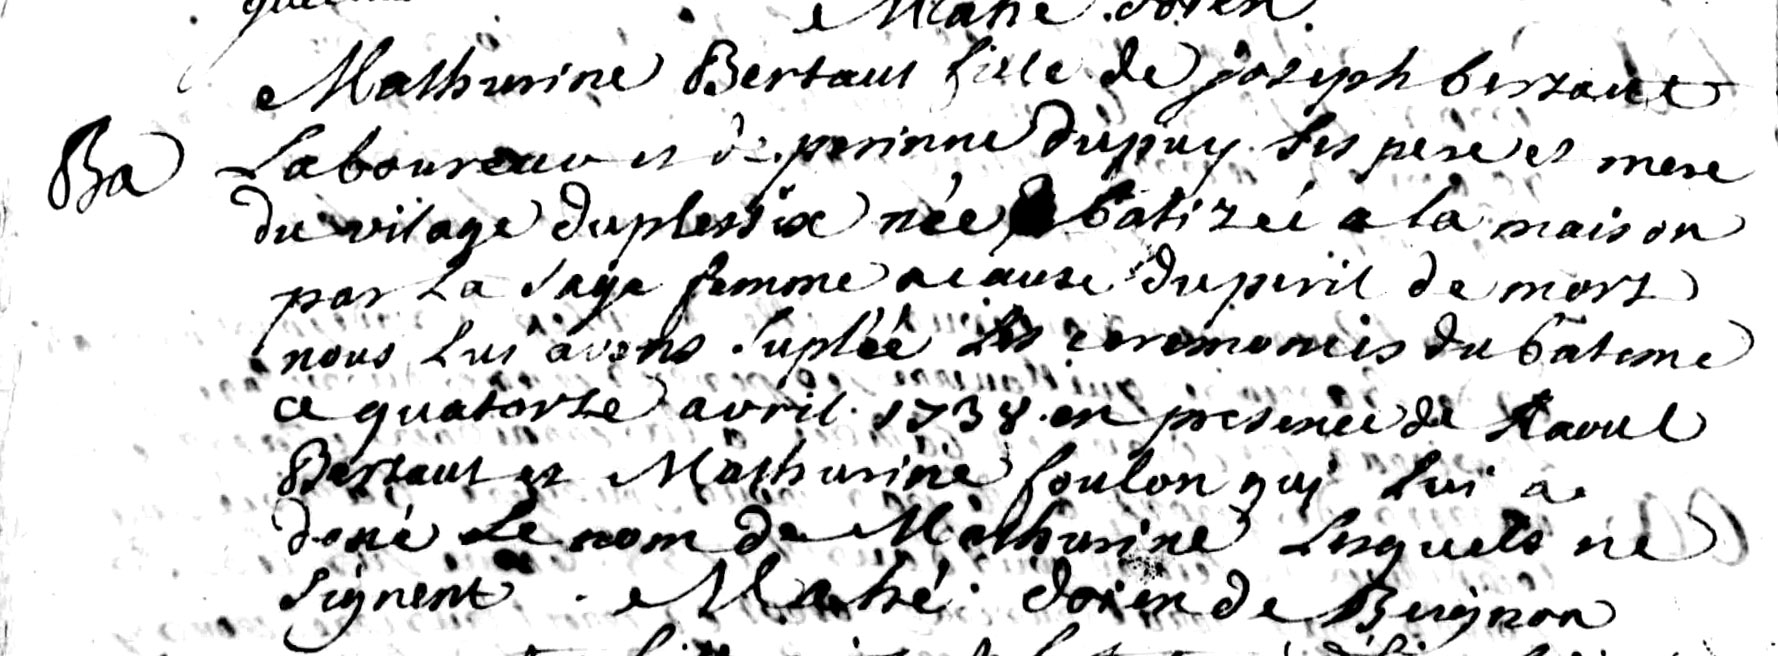 Mahé. doien.
Mathurine Bertaut fille de joseph bertaut
Ba
Laboureau et de perinne dupuy. ses pere et mere
du vilage duplessix née batizeé a la maison
par La sage femme acause duperil de mort
nous Lui avons supléé Les ceremonies du bâteme
ce quatorze avril. 1738. en presence de Raoul
Bertaut et Mathurine foulon qui Lui a
doné Le nom de Mathurine Lesquels ne
signent. Mahé. doien de Beignon